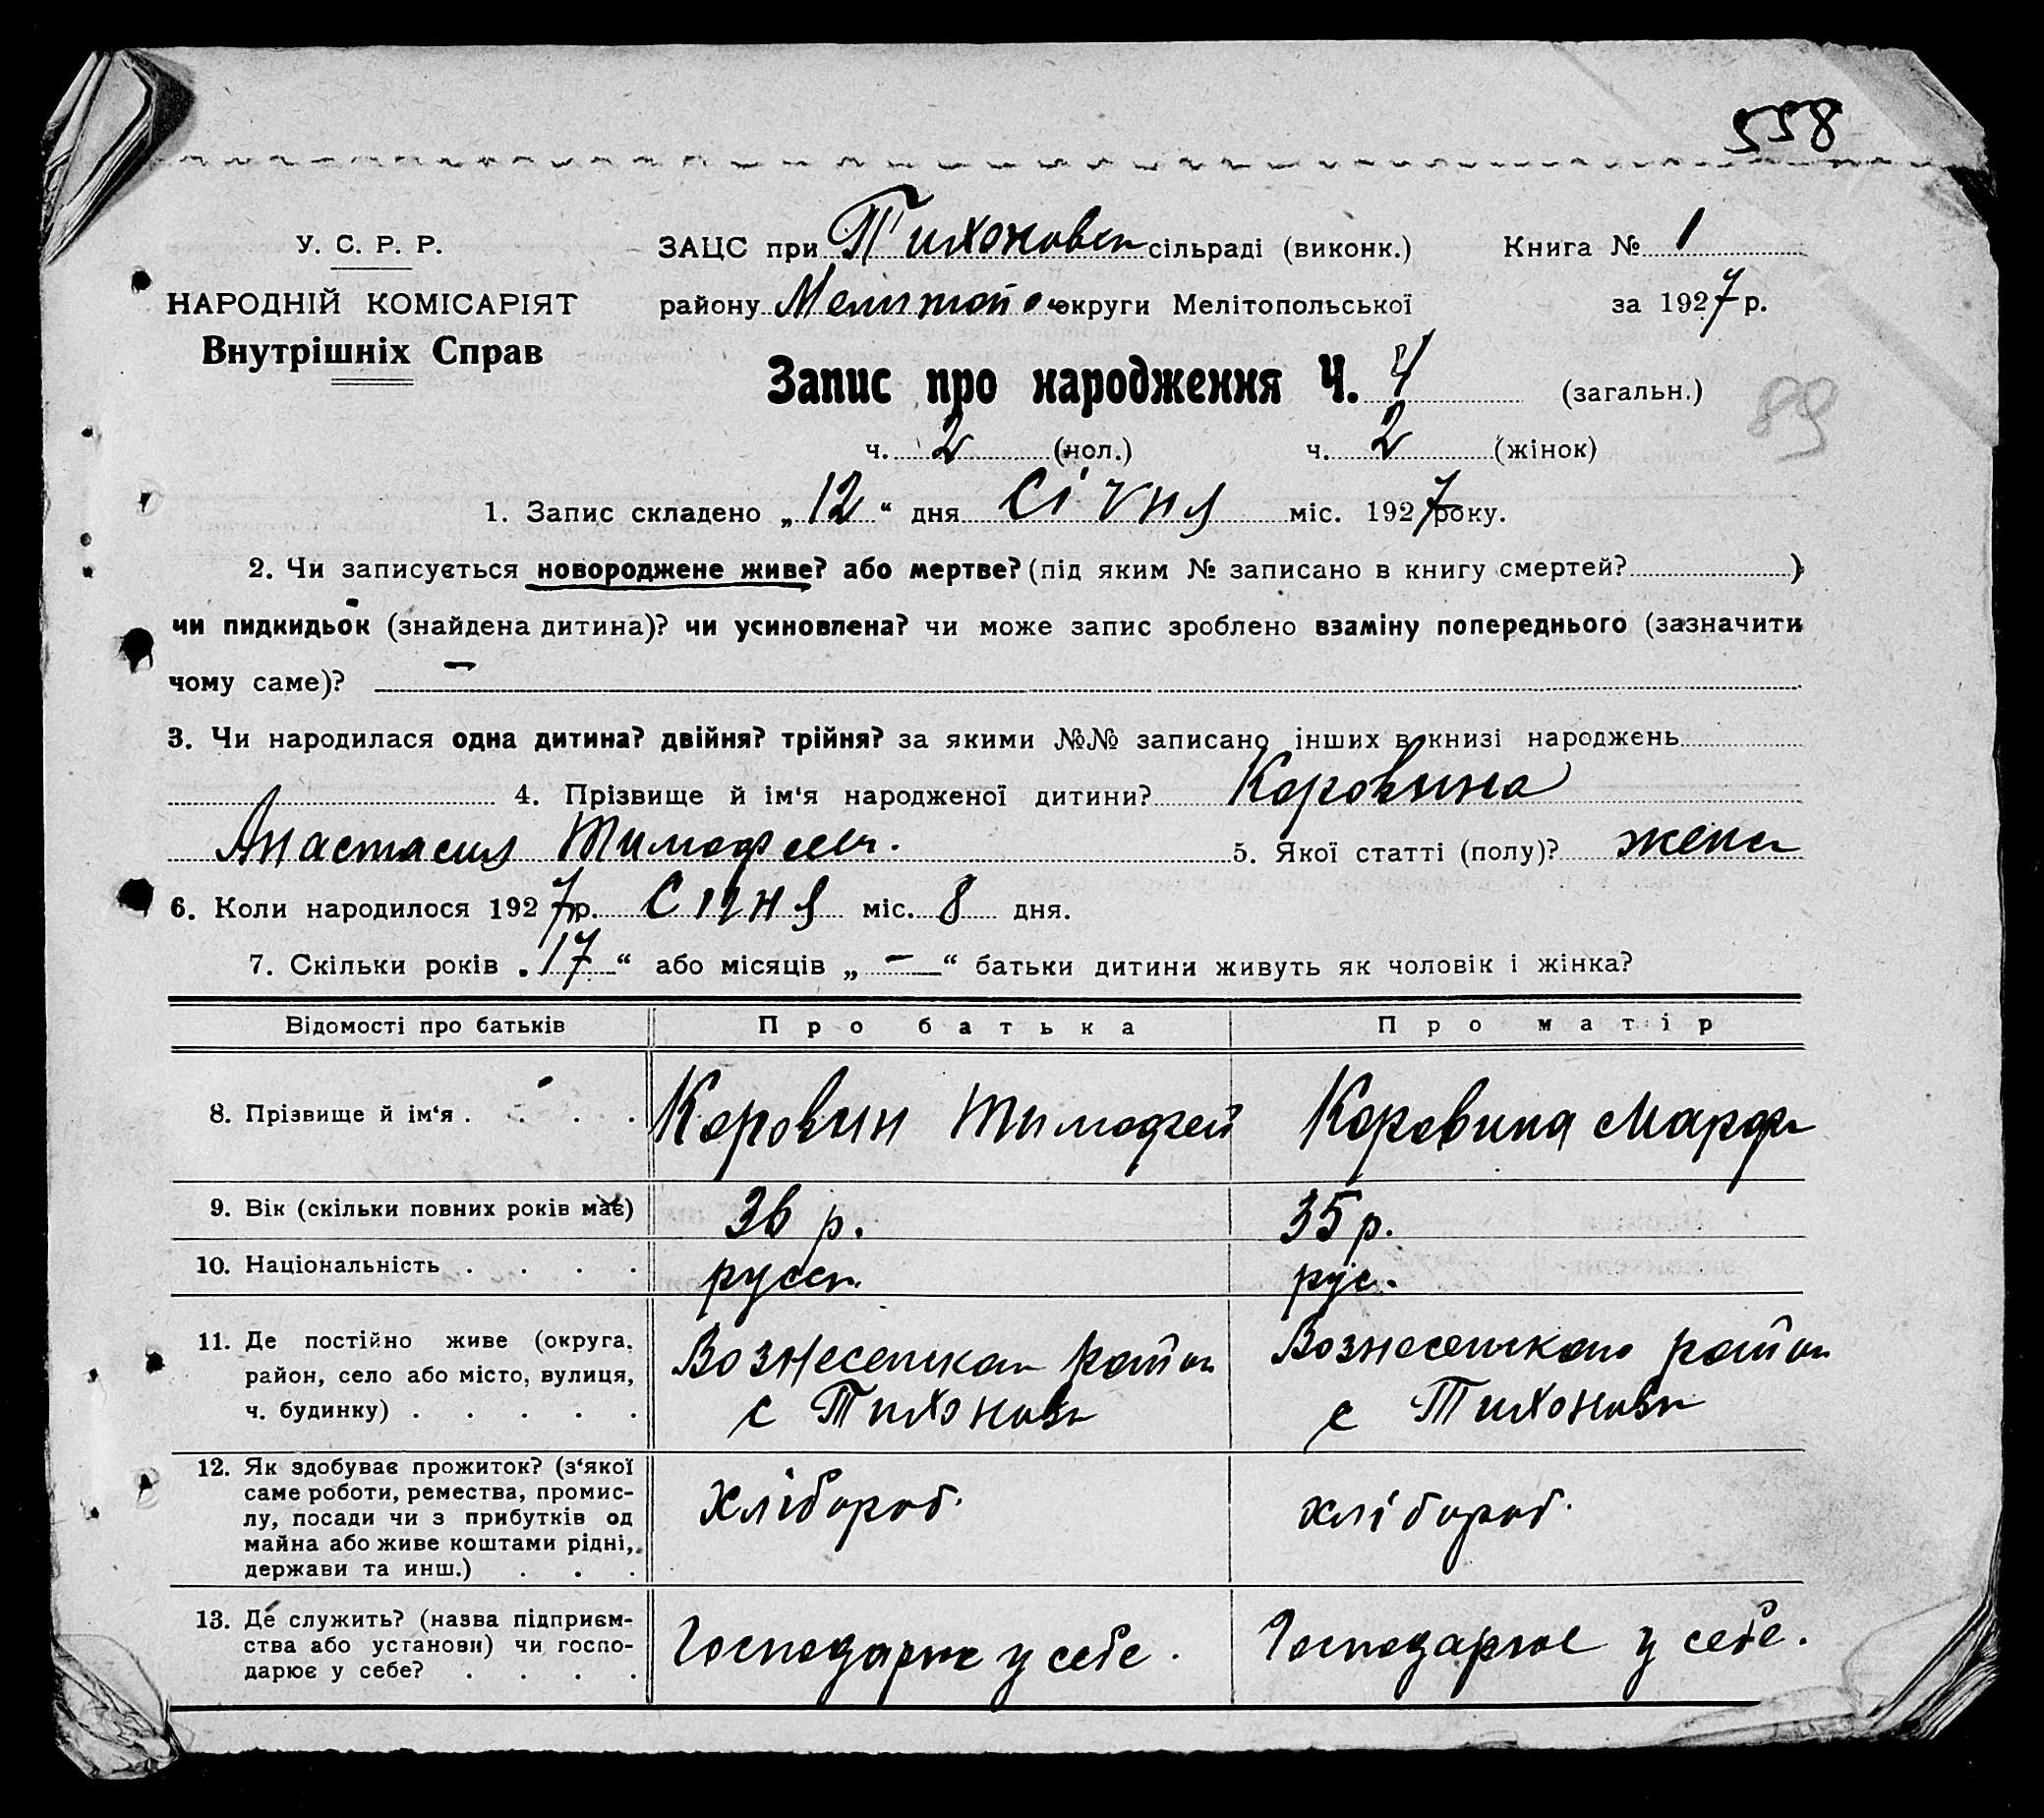 558
У. С. Р. Р.
ЗАЦС при Тихоновск сільраді (виконк.) Книга № 1
НАРОДНІЙ КОМІСАРІЯТ
району Мелітоп округи Мелітопольської за 1927 р.
Внутрішніх Справ
Запис про народження Ч. 4 (загальн.)
89
ч. 2 (чол.) ч. 2 (жінок)
1. Запис складено „12“ дня Січня міс. 1927 року.
2. Чи записується новороджене живе? або мертве? (під яким № записано в книгу смертей? )
чи пидкидьок (знайдена дитина)? чи усиновлена? чи може запис зроблено взаміну попереднього (зазначити
чому саме)? —
3. Чи народилася одна дитина? двійня? трійня? за якими №№ записано інших в книзі народжень
4. Прізвище й ім‘я народженої дитини? Коровина
Анастасия Тимофеев. 5. Якої статті (полу)? жен
6. Коли народилося 1927 р. Січня міс. 8 дня.
7. Скільки років „17“ або місяців „—“ батьки дитини живуть як чоловік і жінка?
Відомості про батьків Про батька Про матір
8. Прізвище й ім‘я . . . . Коровин Тимофей Коровина Марф
9. Вік (скільки повних років має) 36 р. 35 р.
10. Національність . . . . русск рус.
11. Де постійно живе (округа, Вознесенкам район Вознесенкам район
район, село або місто, вулиця, с Тихоновк с Тихоновк
ч. будинку) . . . . .
12. Як здобуває прожиток? (з‘якої
саме роботи, ремества, промис- Хлібороб. хлібороб.
лу, посади чи з прибутків од
майна або живе коштами рідні,
держави та инш.) . . .
13. Де служить? (назва підприєм-
ства або установи) чи госпо- Господарює у себе. Господарює у себе.
дарює у себе? . . . .